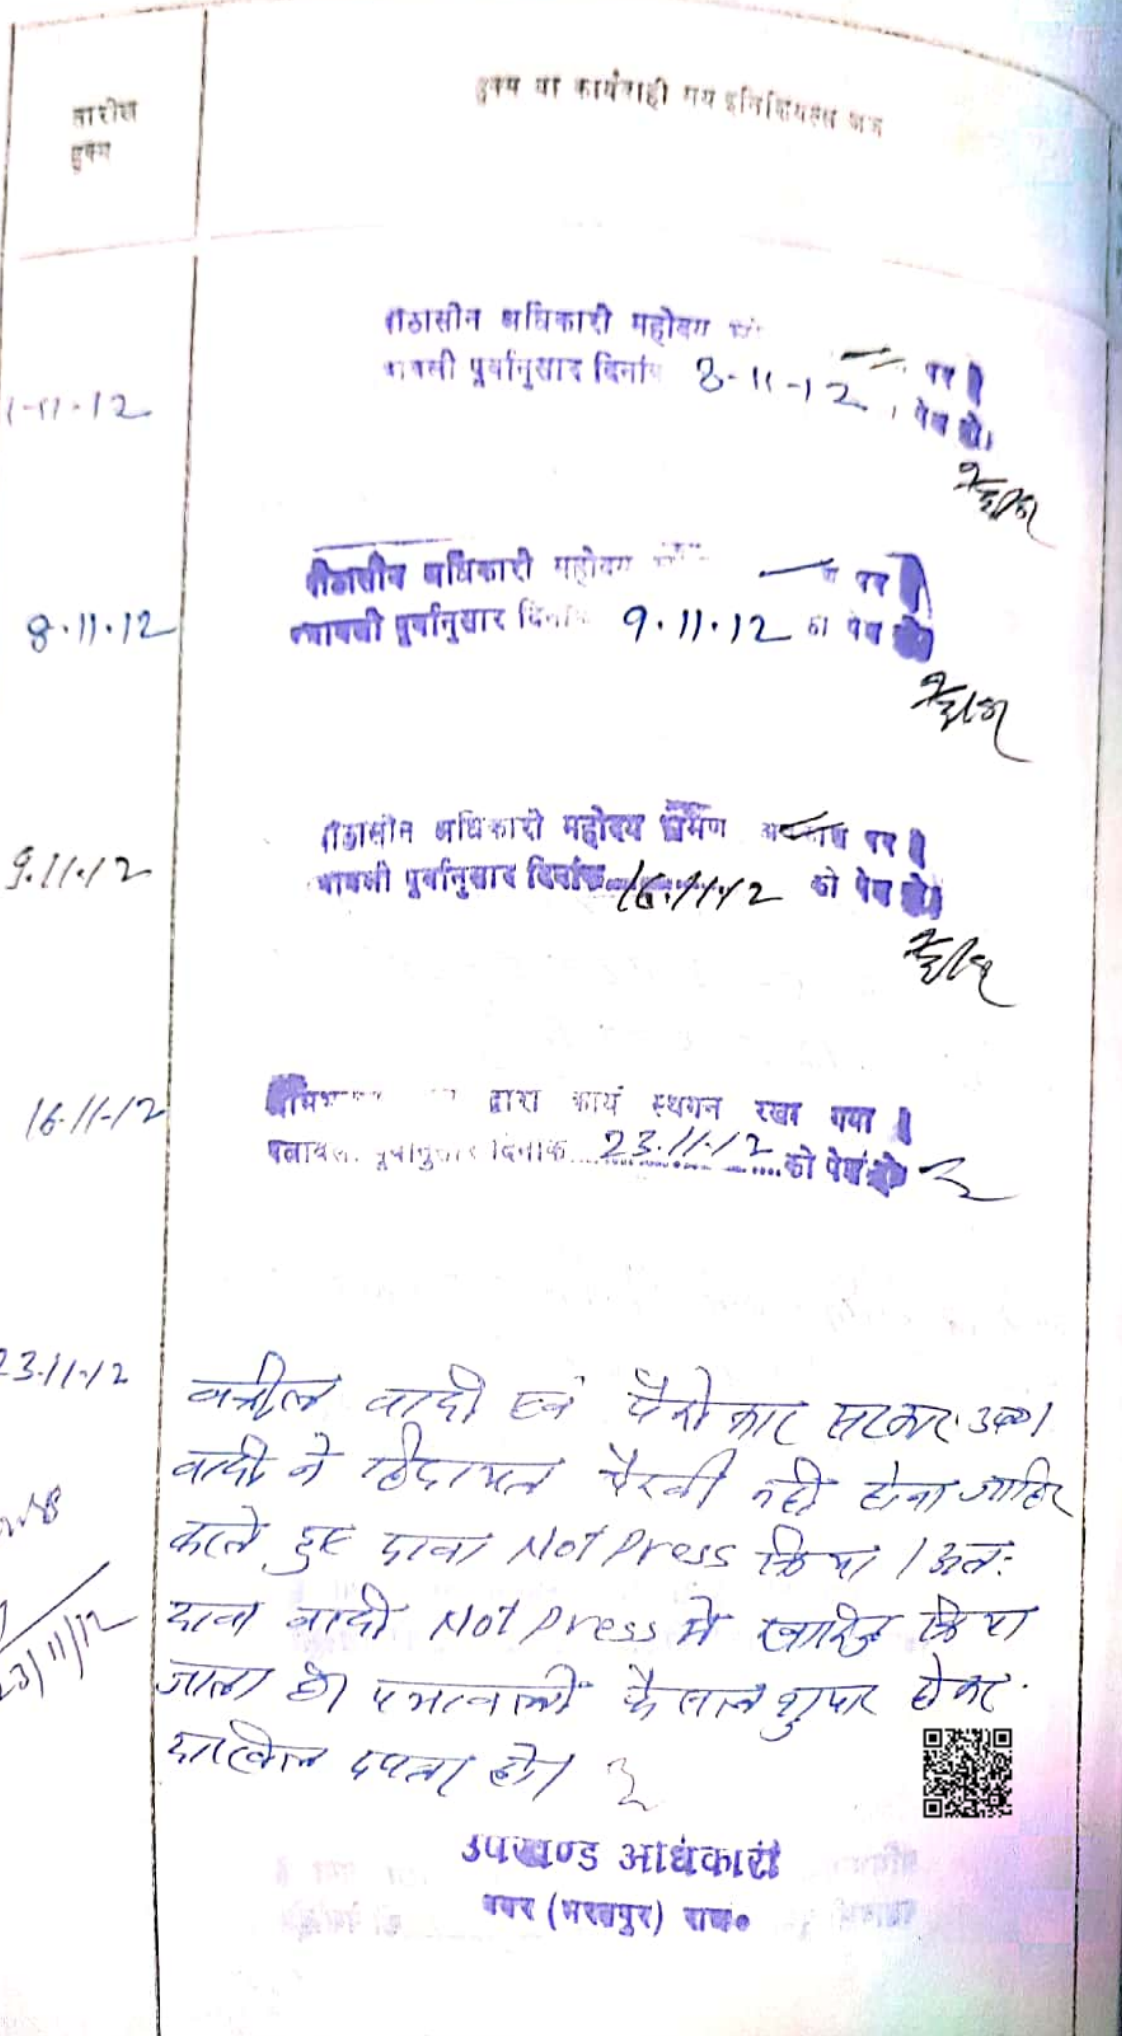 तारीख
हुक्म
हुक्म या कार्यवाही मय इनिशियल्स जज
1-11-12
पीठासीन अधिकारी महोदय पर।
पत्रावली पूर्वानुसार दिनांक 8-11-12 पेश हो।
8.11.12
पीठासीन अधिकारी महोदय पर।
पत्रावली पूर्वानुसार दिनांक 9.11.12 को पेश हो।
9.11.12
पीठासीन अधिकारी महोदय भ्रमण पर।
पत्रावली पूर्वानुसार दिनांक 16.11.12 को पेश हो।
16.11.12
द्वारा कार्य स्थगन रखा गया।
पत्रावली पूर्वानुसार दिनांक 23.11.12 को पेश हो।
23.11.12
वकील वादी एवं पैरोकार सरकार उप०।
वादी ने हिदायत पैरवी नही होना जाहिर
करते हुए दावा Not Press किया। अतः
दावा वादी Not press मे खारिज किया
जाता है। पत्रावली फैसल शुमार होकर
दाखिल दफ्तर हो।
23/11/12
उपखण्ड अधिकारी
(भरतपुर) राज०